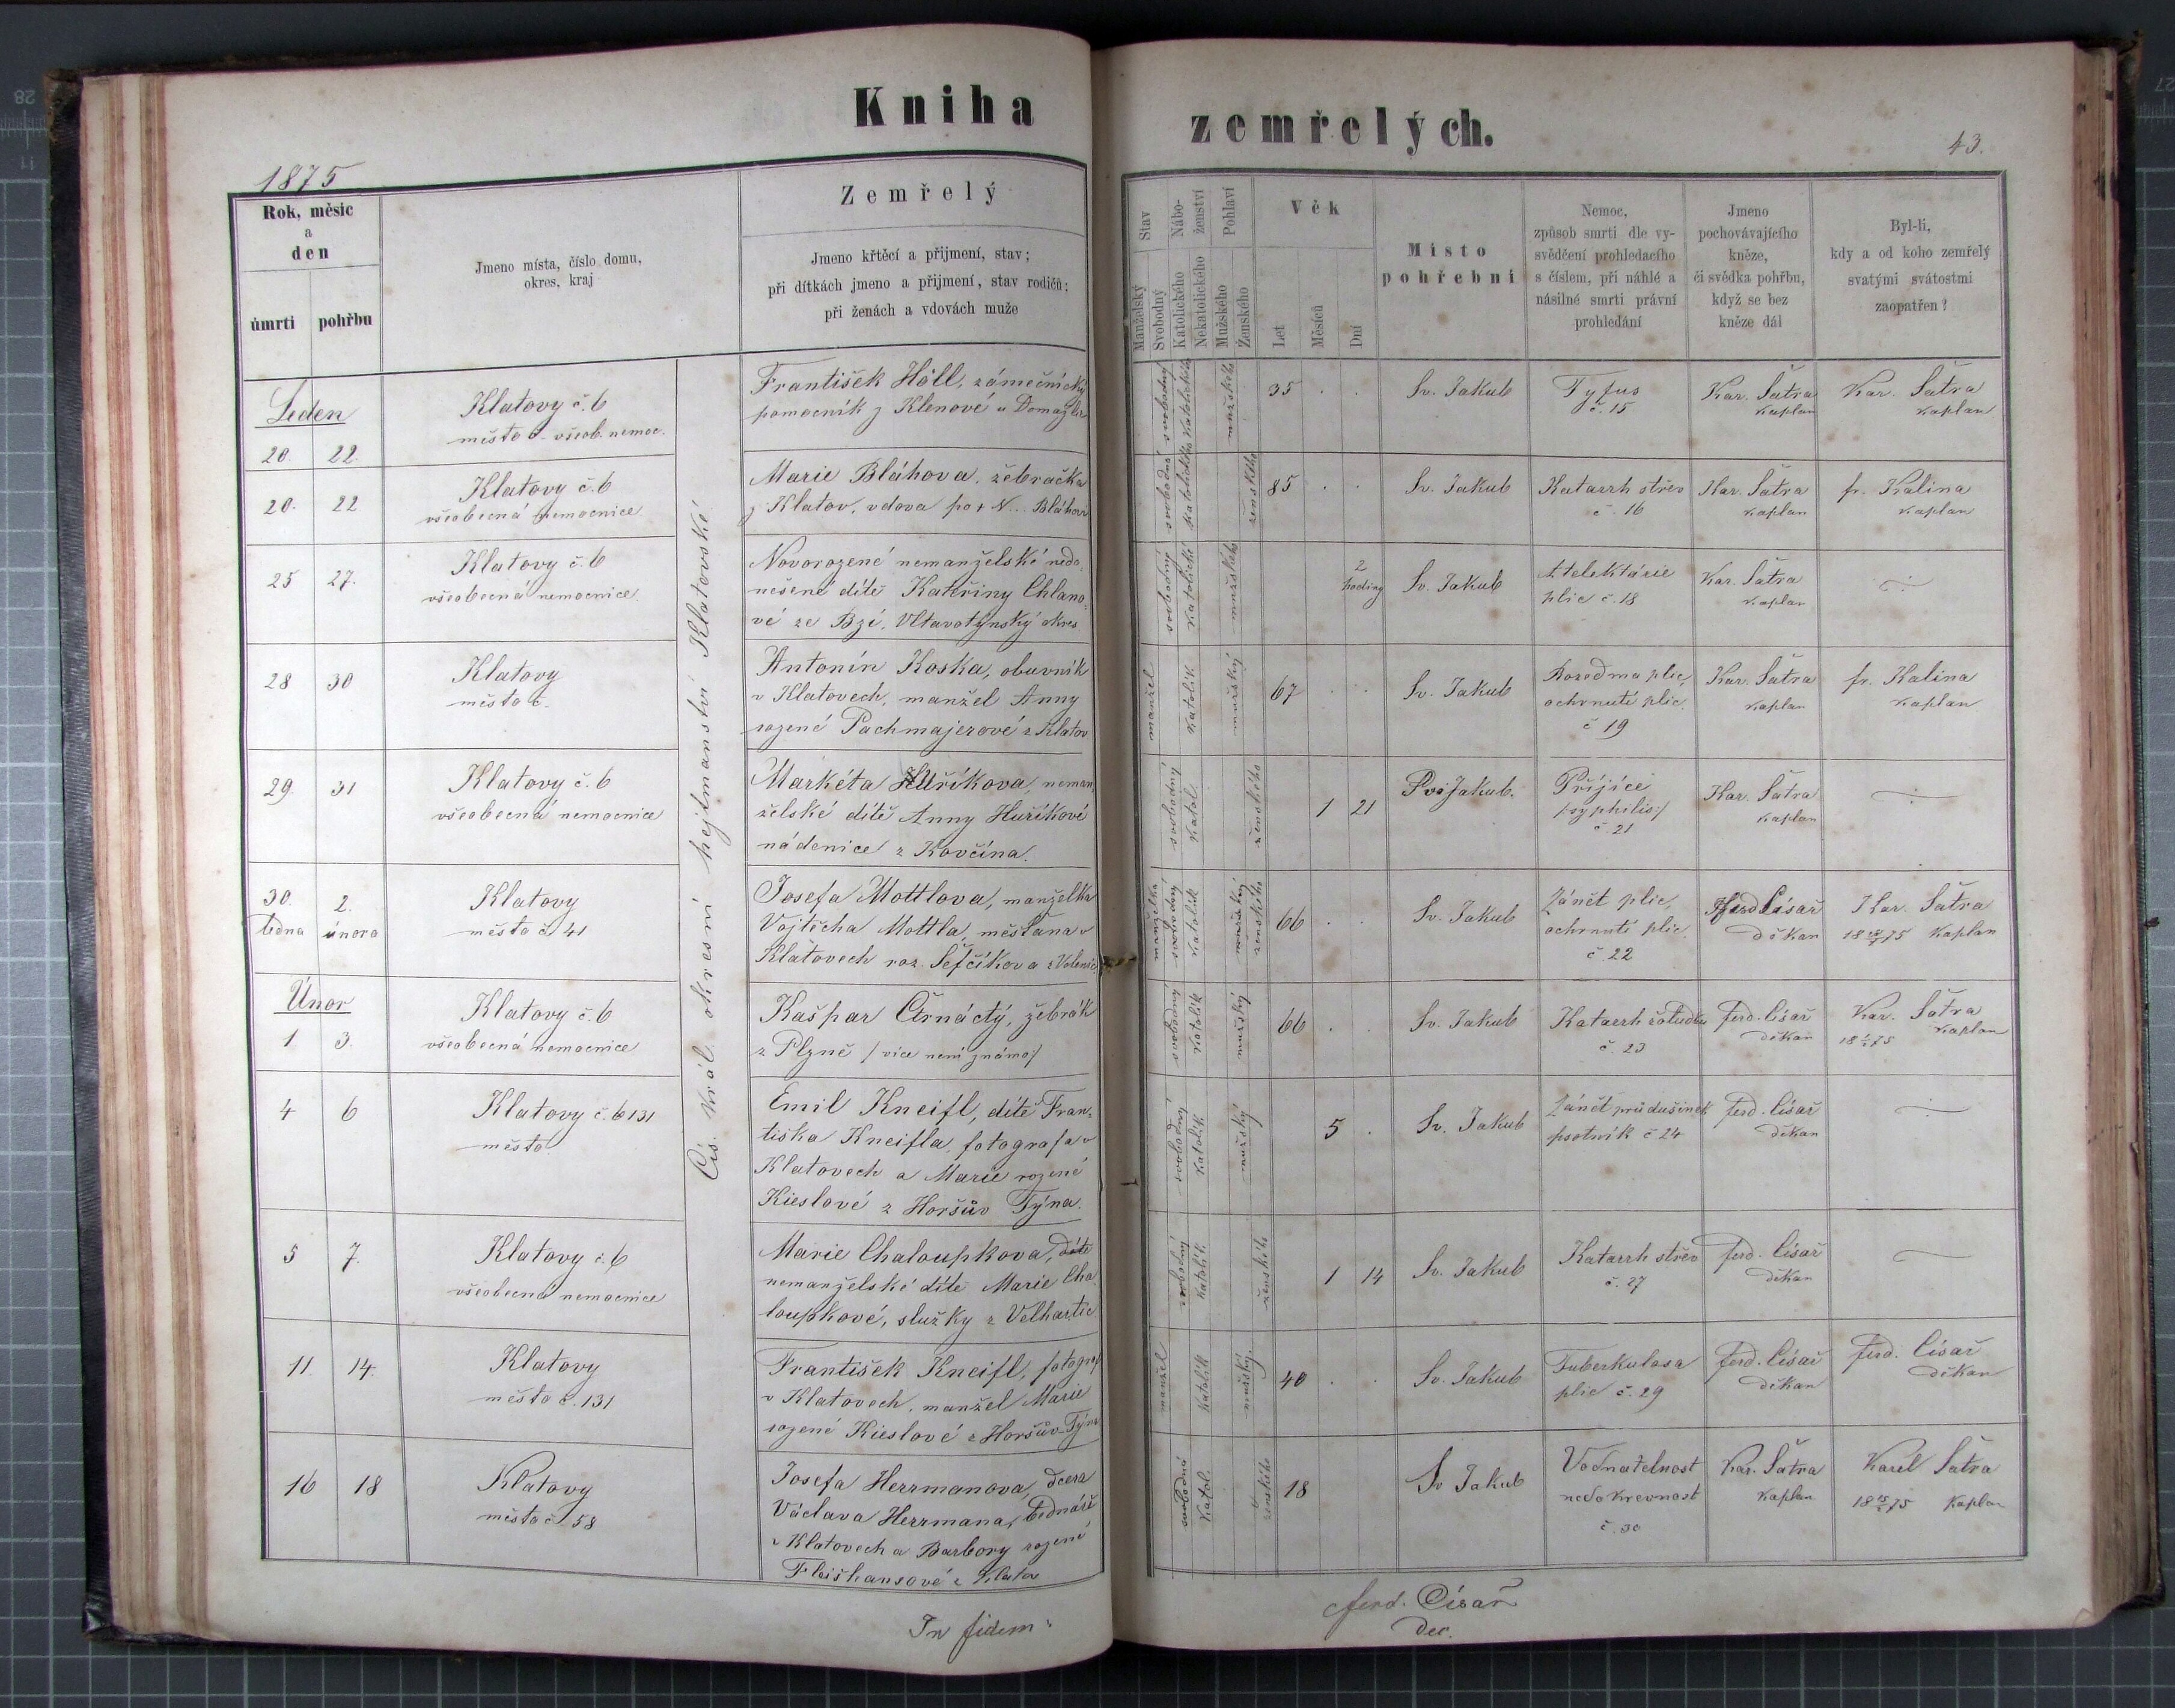 Kniha
zemřelých.
43.
1875
Rok, měsíc
a
den
úmrtí
pohřbu
Jmeno místa, číslo domu,
okres, kraj
Zemřelý
Jmeno křtěcí a přijmení, stav;
při dítkách jmeno a přijmení, stav rodičů;
při ženách a vdovách muže
Stav
Manželský
Svobodný
Nábo-
ženství
Katolického
Nekatolického
Pohlaví
Mužského
Ženského
Věk
Let
Měsíců
Dní
Místo
pohřební
Nemoc,
způsob smrti dle vy-
svědčení prohledacího
s číslem, při náhlé a
násilné smrti právní
prohledání
Jmeno
pochovávajícího
kněze,
či svědka pohřbu,
když se bez
kněze dál
Byl-li,
kdy a od koho zemřelý
svatými svátostmi
zaopatřen?
Cís. král. okresní hejtmanství Klatovské
Leden
20. 22.
Klatovy č. 6
město č. všeob. nemoc.
František Höll, zámečnický
pomocník z Klenové u Domažlic
svobodný
katolického
mužského
35 . .
Sv. Jakub
Tyfus
č. 15
Kar. Šatra
kaplan
Kar. Šatra
kaplan
20. 22
Klatovy č. 6
všeobecná nemocnice
Marie Bláhova, žebračka
z Klatov, vdova po + N... Bláhovi
svobodná
katolického
ženského
85 . .
Sv. Jakub
Katarrh střev
č. 16
Kar. Šatra
kaplan
fr. Kalina
kaplan
25 27.
Klatovy č. 6
všeobecná nemocnice.
Novorozené nemanželské nedo-
nešené dítě Kateřiny Chlano-
vé ze Bzí, Vltavotýnský okres
svobodný
katolické
mužského
2
hodiny
Sv. Jakub
Atelektásie
plic č. 18
Kar. Šatra
kaplan
28 30
Klatovy
město č.
Antonín Koska, obuvník
v Klatovech, manžel Anny
rozené Pachmajerové z Klatov
manžel
katolík
mužský
67 . .
Sv. Jakub
Rozedma plic,
ochrnutí plic.
č 19
Kar. Šatra
kaplan
fr. Kalina
kaplan
29. 31
Klatovy č. 6
všeobecná nemocnice
Markéta Huříkova, neman-
želské dítě Anny Huříkové
nádenice z Kovčína.
svobodný
katol
ženského
1 21
Sv. Jakub.
Příjice
/syphilis/
č. 21
Kar. Šatra
kaplan
30. 2.
ledna února
Klatovy
město č. 41
Josefa Mottlova, manželka
Vojtěcha Mottla, měšťana v
Klatovech roz. Šefčíkova z Volenic
manželka
svobodný
katolík
mužský
ženského
66 . .
Sv. Jakub
Zánět plic,
ochrnutí plic
č. 22
Ferd. Císař
děkan
Kar. Šatra
kaplan
Únor
1 3.
Klatovy č. 6
všeobecná nemocnice
Kašpar Čtrnáctý, žebrák
z Plzně /více není známo/
svobodný
katolík
mužský
66 . .
Sv. Jakub
Katarrh žaludku
č. 23
Ferd. Císař
děkan
Kar. Šatra
kaplan
4 6
Klatovy č. 6 131
město
Emil Kneifl, dítě Fran-
tiška Kneifla, fotografa v
Klatovech a Marie rozené
Kieslové z Horšův Týna.
svobodný
katolík
mužský
5 .
Sv. Jakub
Zánět průdušinek
psotník č 24
Ferd. Císař
děkan
5 7.
Klatovy č. 6
všeobecná nemocnice
Marie Chaloupkova, dítě
nemanželské dítě Marie Cha-
loupkové, služky z Velhartic
svobodný
katolík
ženského
1 14
Sv. Jakub
Katarrh střev
č. 27
Ferd. Císař
děkan
11. 14.
Klatovy
město č. 131
František Kneifl, fotograf
v Klatovech, manžel Marie
rozené Kieslové z Horšův Týna
manžel
katolík
mužský.
40 . .
Sv. Jakub
Tuberkulosa
plic č. 29
Ferd. Císař
děkan
Ferd. Císař
děkan
16 18
Klatovy
město č. 58
Josefa Herrmanova, dcera
Václava Herrmana, bednáře
v Klatovech a Barbory rozené
Fleišhansové z Klatov
svobodná
katol.
ženského
18
Sv Jakub
Vodnatelnost
nedokrevnost
č. 30
Kar. Šatra
kaplan
Karel Šatra
kaplan
In fidem:
Ferd. Císař
Dec.